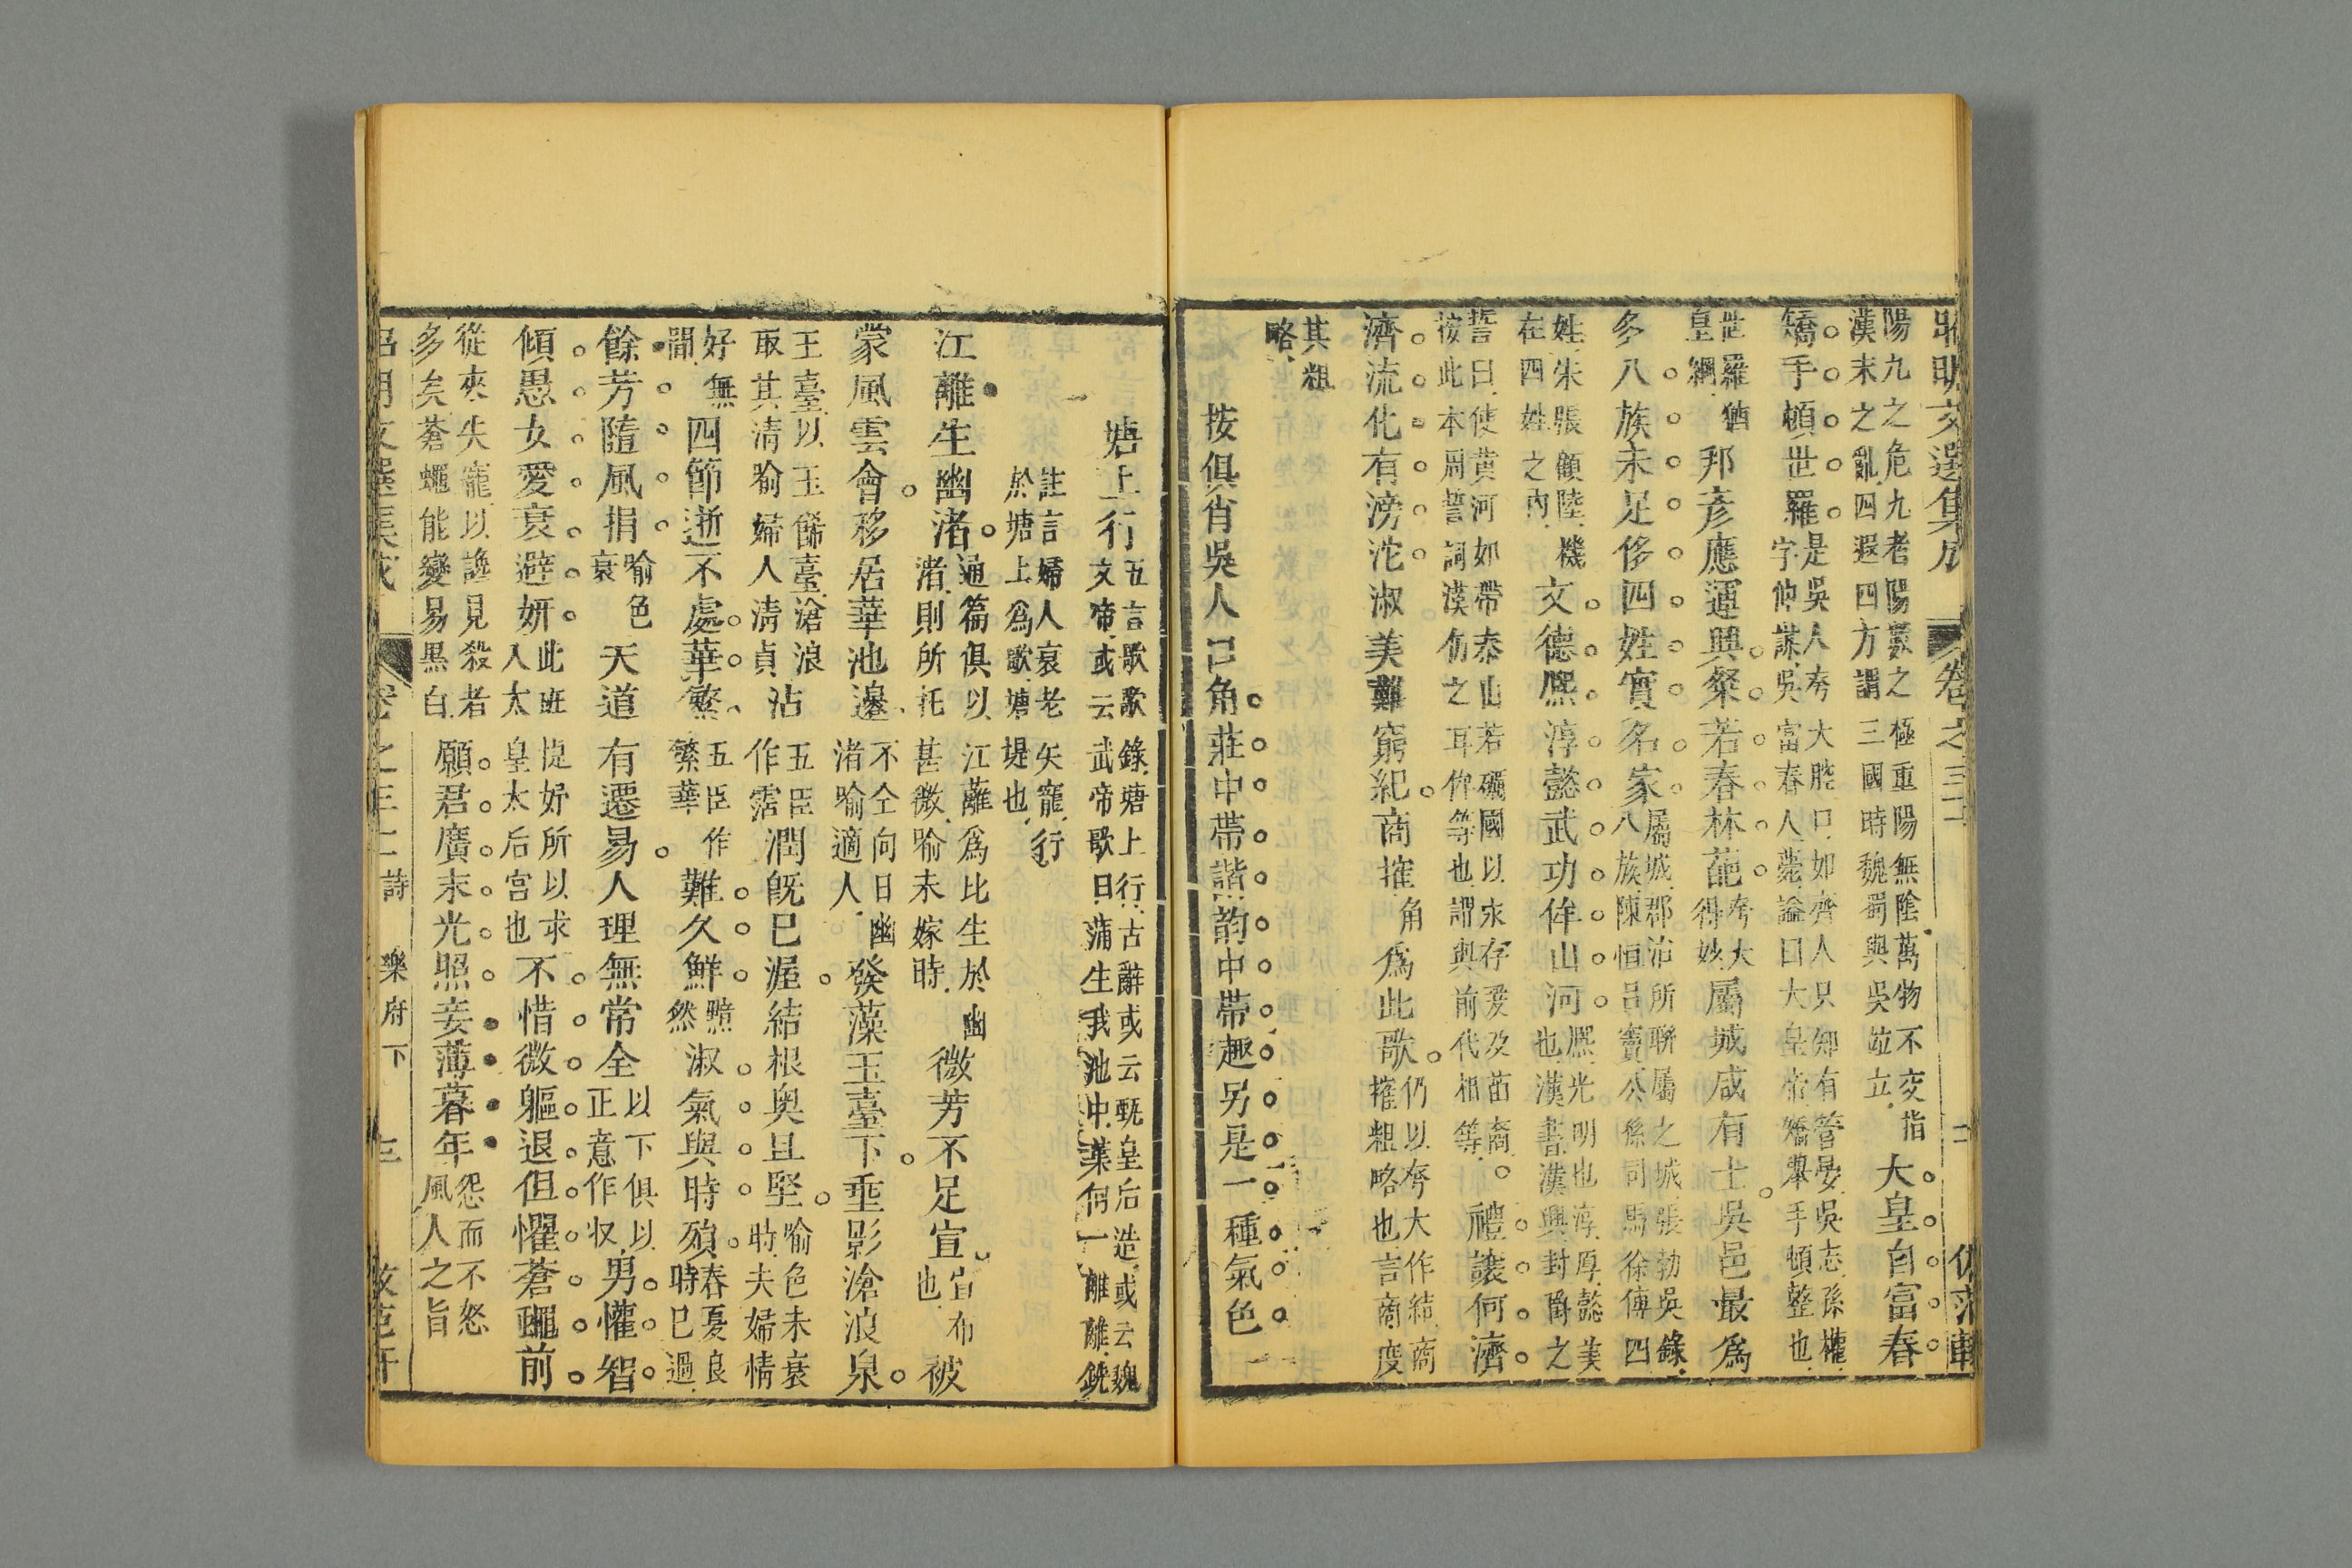 昭明文選集成　卷之三十　二　仿范軒
陽九之危九者陽數之極重陽無陰萬物不交指漢末之亂四遐四方謂三國時魏蜀與吳竝立大皇自富春
矯手頓世羅是吳人夸大腔口如齊人只知有管晏吳志孫權字仲謀吳富春人薨謚曰大皇帝矯舉手頓整也
世羅猶皇綱邦彥應運興粲若春林葩夸大得妙屬城咸有士吳邑最為
多八族未足侈四姓實名家屬城郡治所聯屬之城張勃吳錄八族陳恒呂竇公孫司馬徐傅四
姓朱張顧陸機在四姓之內文德熈淳懿武功侔山河熈光明也淳厚懿美也漢書漢興封爵之
誓曰使黃河如帶泰山若礪國以永存爰及苗裔按此本周誓詞漢仿之耳侔等也謂與前代相等禮讓何濟
濟流化有滂沱淑美難窮紀商搉角為此歌仍以夸大作結商搉粗略也言商度
其粗略
按俱肖吳人口角莊中帶諧韵中帶趣另是一種氣色
塘上行五言歌歌錄塘上行古辭或云甄皇后造或云魏文帝或云武帝歌曰蒲生我池中葉何一離離銑
註言婦人衰老矢寵行於塘上為歌塘堤也
江離生幽渚通篇俱以江蘺為比生於幽渚則所托甚微喻未嫁時微芳不足宣宣布也被
蒙風雲會移居華池邊不仝向日幽渚喻適人發藻玉臺下垂影滄浪泉
王臺以玉餙臺滄浪取其清喻婦人清貞沾五臣作霑潤既已渥結根奥且堅喻色未衰時夫婦情
好無間四節逝不處華繁五臣作繁華難久鮮黯然淑氣與時殞春憂良時已過
餘芳隨風捐喻色衰天道有遷易人理無常全以下俱以正意作収男懽智
傾愚女愛衰避妍此班婕妤所以求入太皇太后宫也不惜微軀退但懼蒼蠅前
從來失寵以讒見殺者多矣蒼蠅能變易黑白願君廣末光照妾薄暮年怨而不怒風人之旨
昭明文選集成　卷之三十詩　樂府下　三